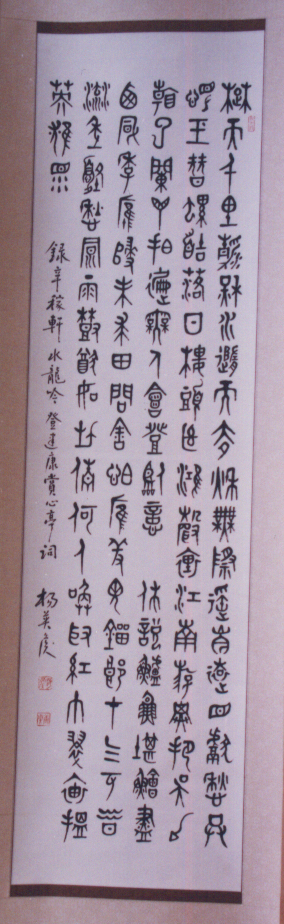 楚天千里清秋水隨天去秋無際遙岑遠目獻愁供
恨玉簪螺髻落日樓頭斷鴻聲裏江南游子把吳鉤
看了闌干拍遍無人會登臨意 休說鱸魚堪鱠盡
西風季鷹歸未求田問舍怕應羞見劉郎才氣可惜
流年憂愁風雨樹猶如此倩何人喚取紅巾翠袖搵
英雄淚 錄辛稼軒水龍吟登建康賞心亭詞 楊英